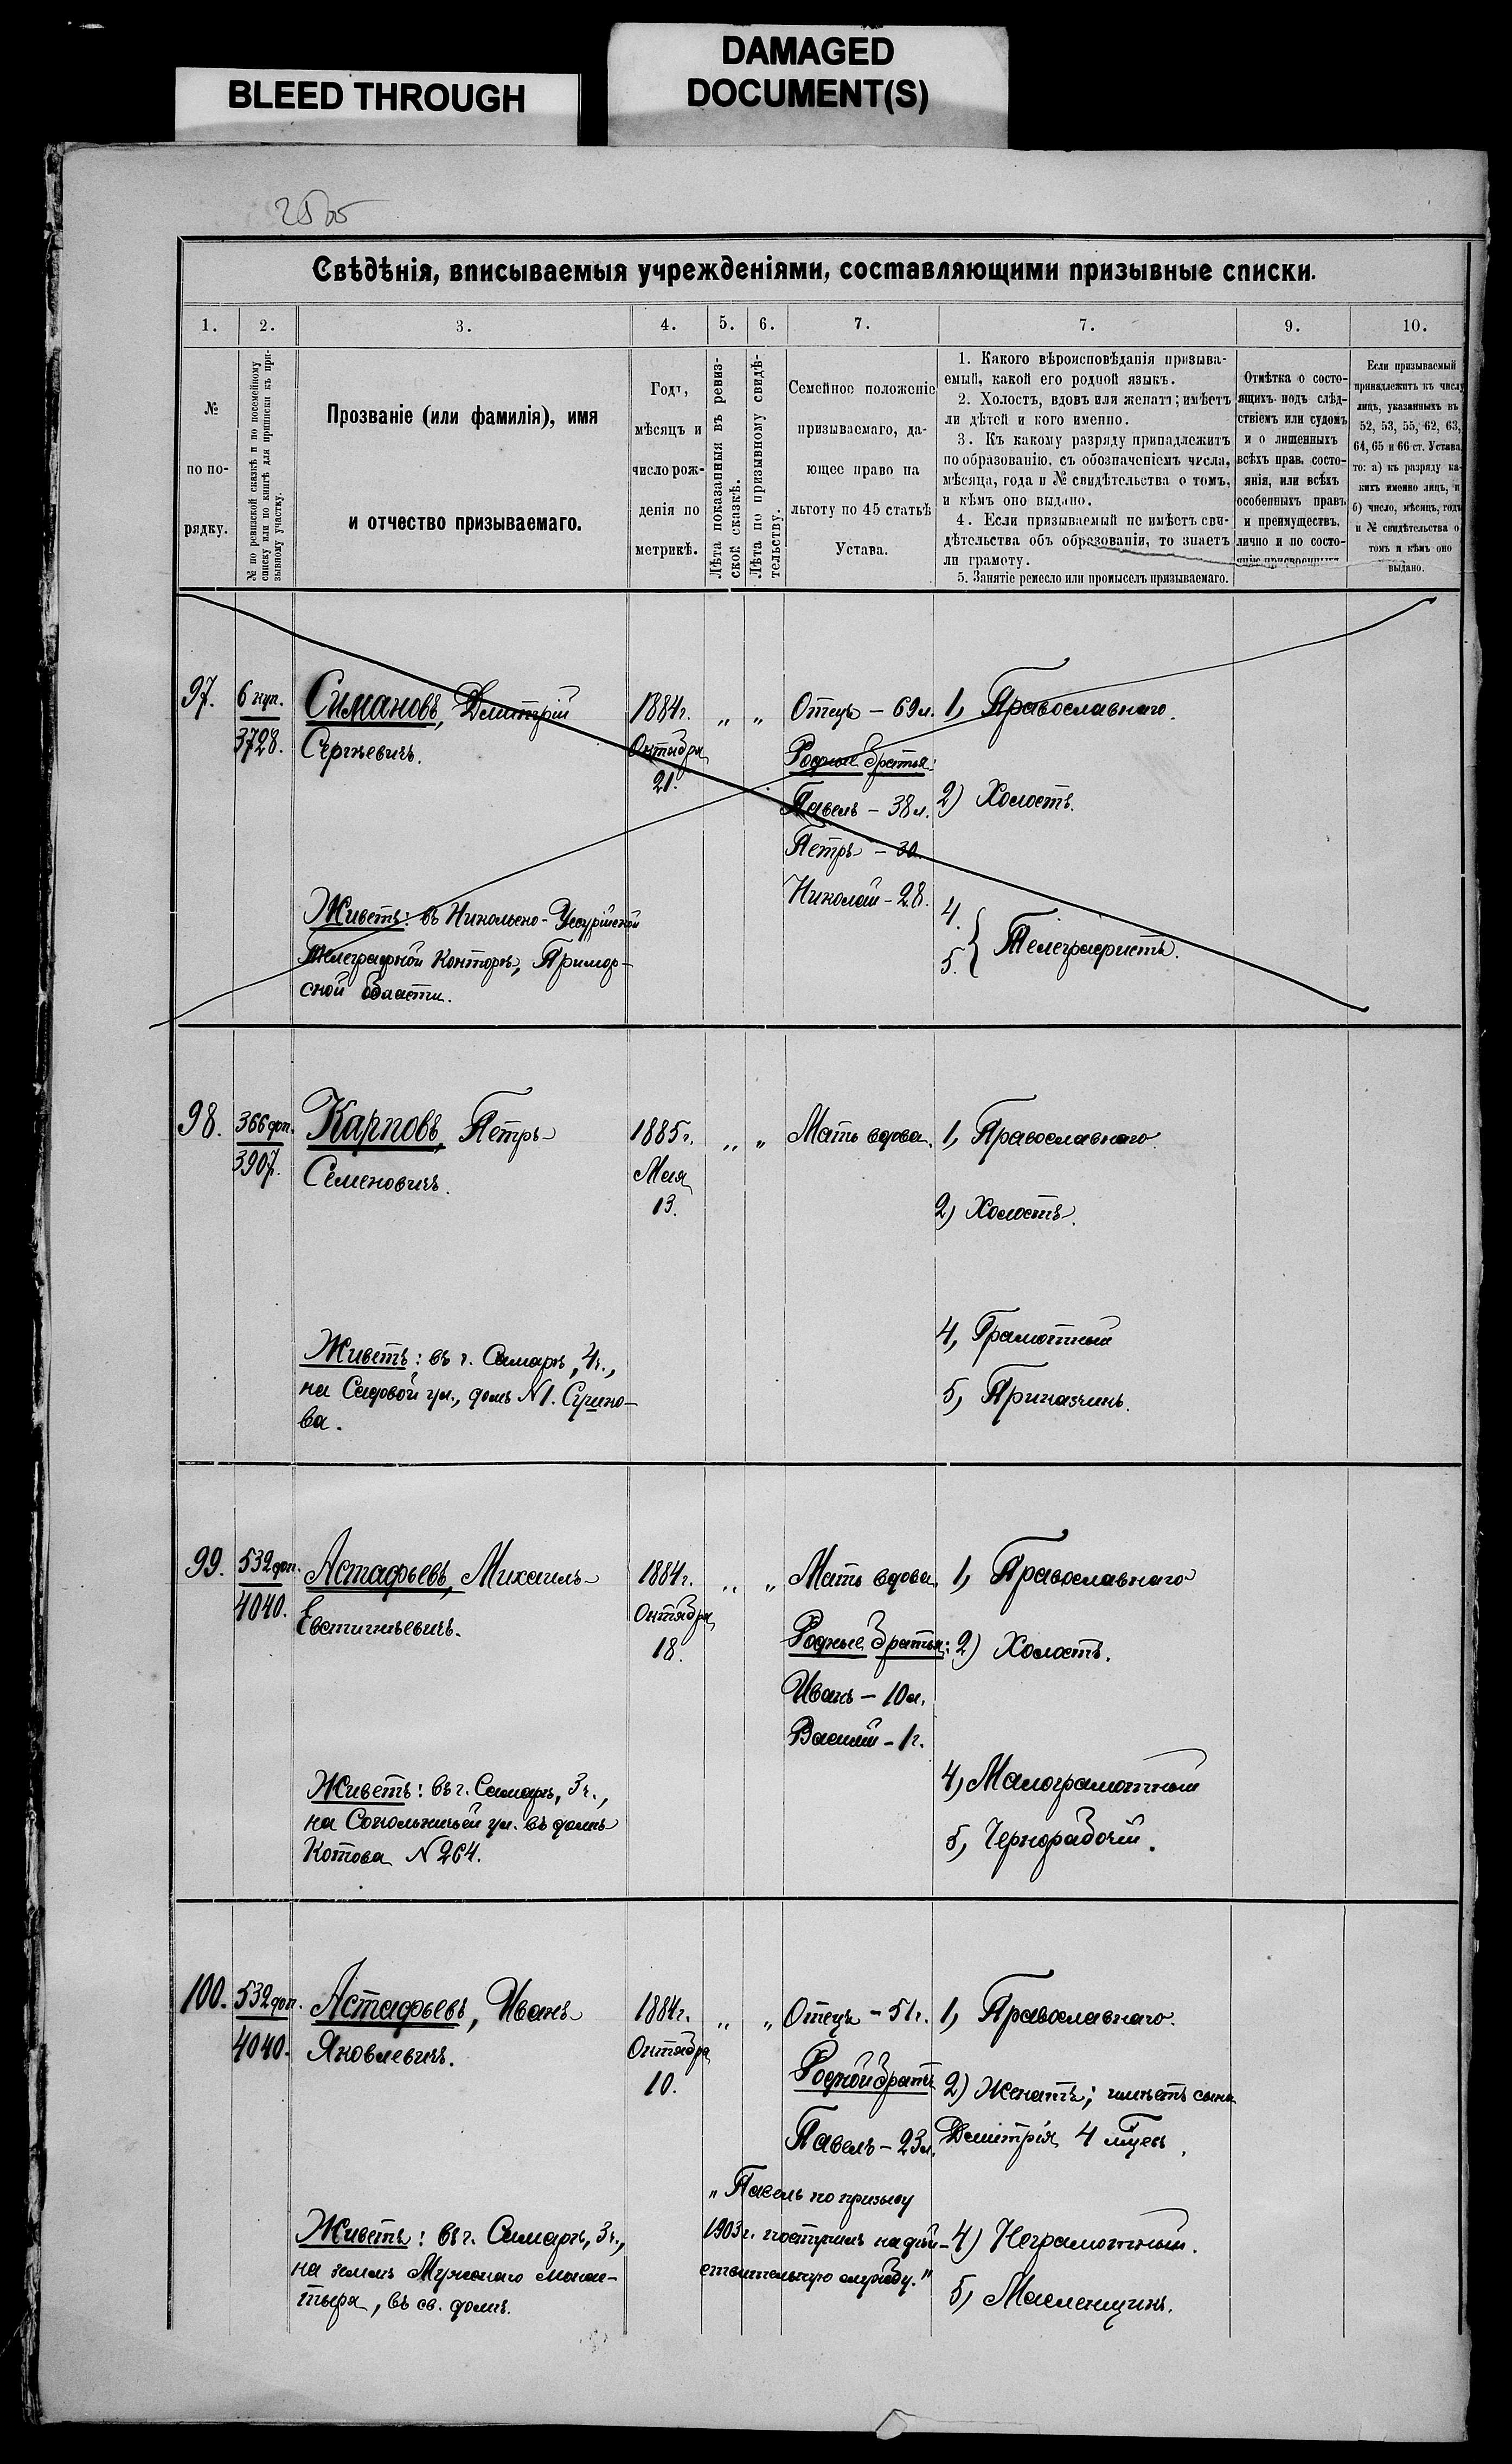 BLEED THROUGH
DAMAGED
DOCUMENT(S)
Свѣдѣнія, вписываемыя учрежденіями, составляющими призывные списки.
1.
2.
3.
4.
5.
6.
7.
7.
9.
10.
№
по по-
рядку.
№ по ревизской сказкѣ и по посемейному
списку или по книгѣ для приписки къ при-
зывному участку.
Прозваніе (или фамилія), имя
и отчество призываемаго.
Годъ,
мѣсяцъ и
число рож-
денія по
метрикѣ.
Лѣта показанныя въ ревиз-
ской сказкѣ.
Лѣта по призывному свидѣ-
тельству.
Семейное положеніе
призываемаго, да-
ющее право на
льготу по 45 статьѣ
Устава.
1. Какого вѣроисповѣданія призыва-
емый, какой его родной языкъ.
2. Холостъ, вдовъ или женатъ; имѣетъ
ли дѣтей и кого именно.
3. Къ какому разряду принадлежитъ
по образованію, съ обозначеніемъ числа,
мѣсяца, года и № свидѣтельства о томъ,
и кѣмъ оно выдано.
4. Если призываемый не имѣетъ сви-
дѣтельства объ образованіи, то знаетъ
ли грамоту.
5. Занятіе ремесло или промыселъ призываемаго.
Отмѣтка о состо-
ящихъ подъ слѣд-
ствіемъ или судомъ
и о лишенныхъ
всѣхъ прав. состо-
янія, или всѣхъ
особенныхъ правъ
и преимуществъ,
лично и по состо-
янію присвоенныхъ
Если призываемый
принадлежитъ къ числу
лицъ, указанныхъ въ
52, 53, 55, 62, 63,
64, 65 и 66 ст. Устава,
то: а) къ разряду ка-
кихъ именно лицъ, и
б) число, мѣсяцъ, годъ
и № свидѣтельства о
томъ и кѣмъ оно
выдано.
97.
6 куп.
3728.
Симановъ, Дмитрій
Сергѣевичъ.
Живетъ: въ Никольско-Уссурійской
телеграфной Конторѣ, Примор-
ской области.
1884г.
Октября
21.
" "
Отецъ – 69 л.
Родные братья:
Павелъ – 38 л.
Петръ – 30.
Николай – 28.
1, Православнаго.
2) Холостъ.
4.
5. } Телеграфистъ.
98.
366 доп.
3907.
Карповъ, Петръ
Семеновичъ.
Живетъ: въ г. Самарѣ, 4ч.,
на Садовой ул., домъ N1.
ва.
1885г.
Мая
13.
" "
Мать вдова.
1, Православнаго
2) Холостъ.
4, Грамотный
5, Приказчикъ.
99.
532 доп.
4040.
Астафьевъ, Михаилъ
Евстигнѣевичъ.
Живетъ: въ г. Самарѣ, 3ч.,
на Сокольничьей ул. въ домѣ
Котова N 264.
1884г.
Октября
18.
" "
Мать вдова.
Родные братья:
Иванъ – 10 л.
Василій – 1 г.
1, Православнаго
2) Холостъ.
4) Малограмотный
5, Чернорабочій.
100.
532 доп.
4040.
Астафьевъ, Иванъ
Яковлевичъ.
Живетъ: въ г. Самарѣ, 3ч.,
на землѣ Мужскаго монас-
тыря, въ св. домѣ.
1884г.
Октября
10.
" "
Отецъ – 51 г.
Родной братъ
Павелъ – 23 л.
"Павелъ по призыву
1903 г. поступилъ на дѣй-
ствительную службу."
1, Православнаго.
2) Женатъ; имѣетъ сына
Дмитрія 4 мѣсец.
4) Неграмотный.
5, Масленщикъ.